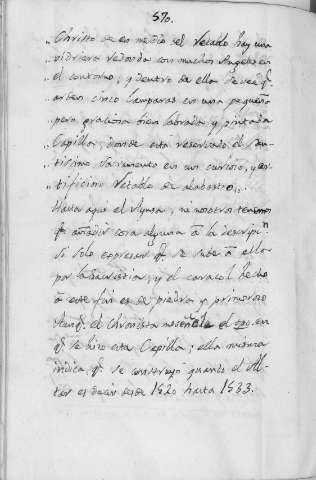 570.
„ Christo se en medio del Retablo hay una
„ vidriera redonda con muchos Angeles en
„ el contorno, y dentro de ella se ve q.
„ arden cinco lamparas en una pequeña
„ pero graciosa bien labrada y pintada
„ Capilla, donde esta reservado el San-
„ tissimo Sacramento en un curioso, y ar-
„ tificioso Retablo de alabastro „
Hasta aqui el Aynsa, ni nosotros tenemos
q. añadir cosa alguna â la descripn
Si solo expresar q. se sube â ella
por la Sacristia, y el caracol hecho
â este fin es de piedra y primoroso
Aunq. el Chronista no señala el año en
q. se hizo esta Capilla; ella misma
indica q. se construyó quando el Al-
tar es decir desde 1520 hasta 1533.